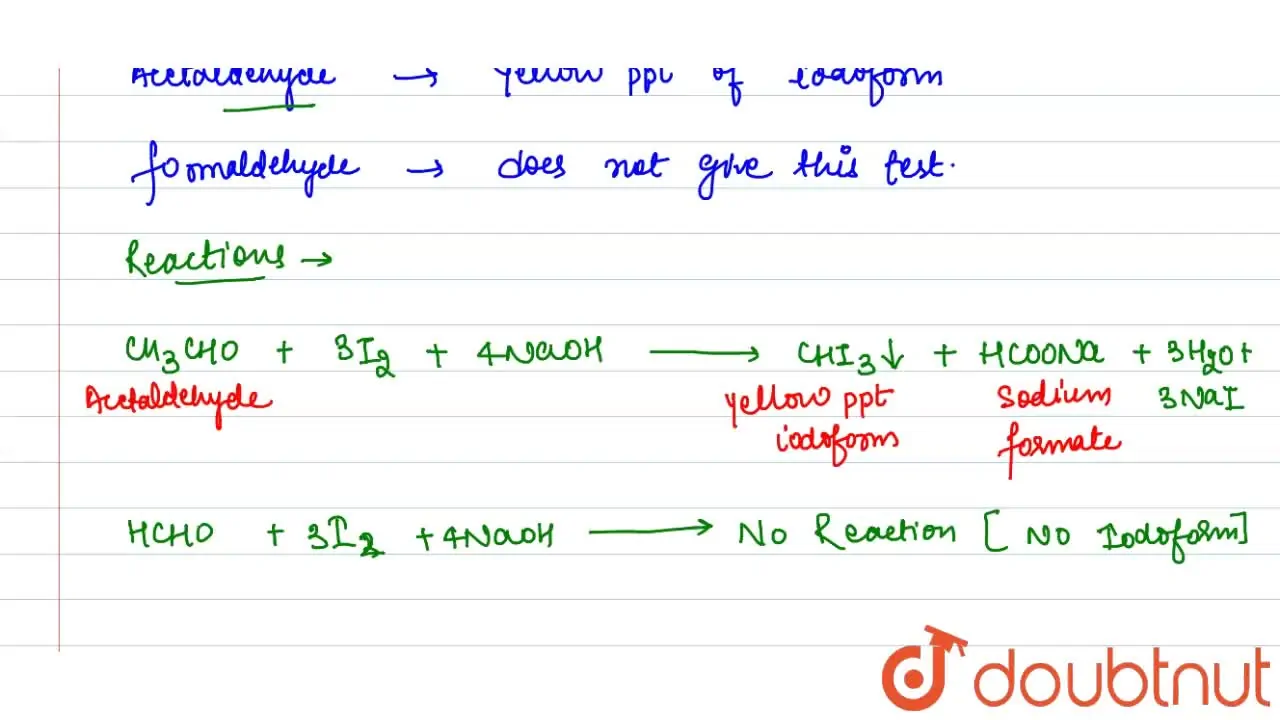 Acetaldehyde → Yellow ppt of iodoform
formaldehyde → does not give this test.
Reactions →
CH3CHO + 3I2 + 4NaOH → CHI3↓ + HCOONa + 3H2O +
Acetaldehyde yellow ppt sodium 3NaI
iodoform formate
HCHO + 3I2 + 4NaOH → No Reaction [No Iodoform]
doubtnut